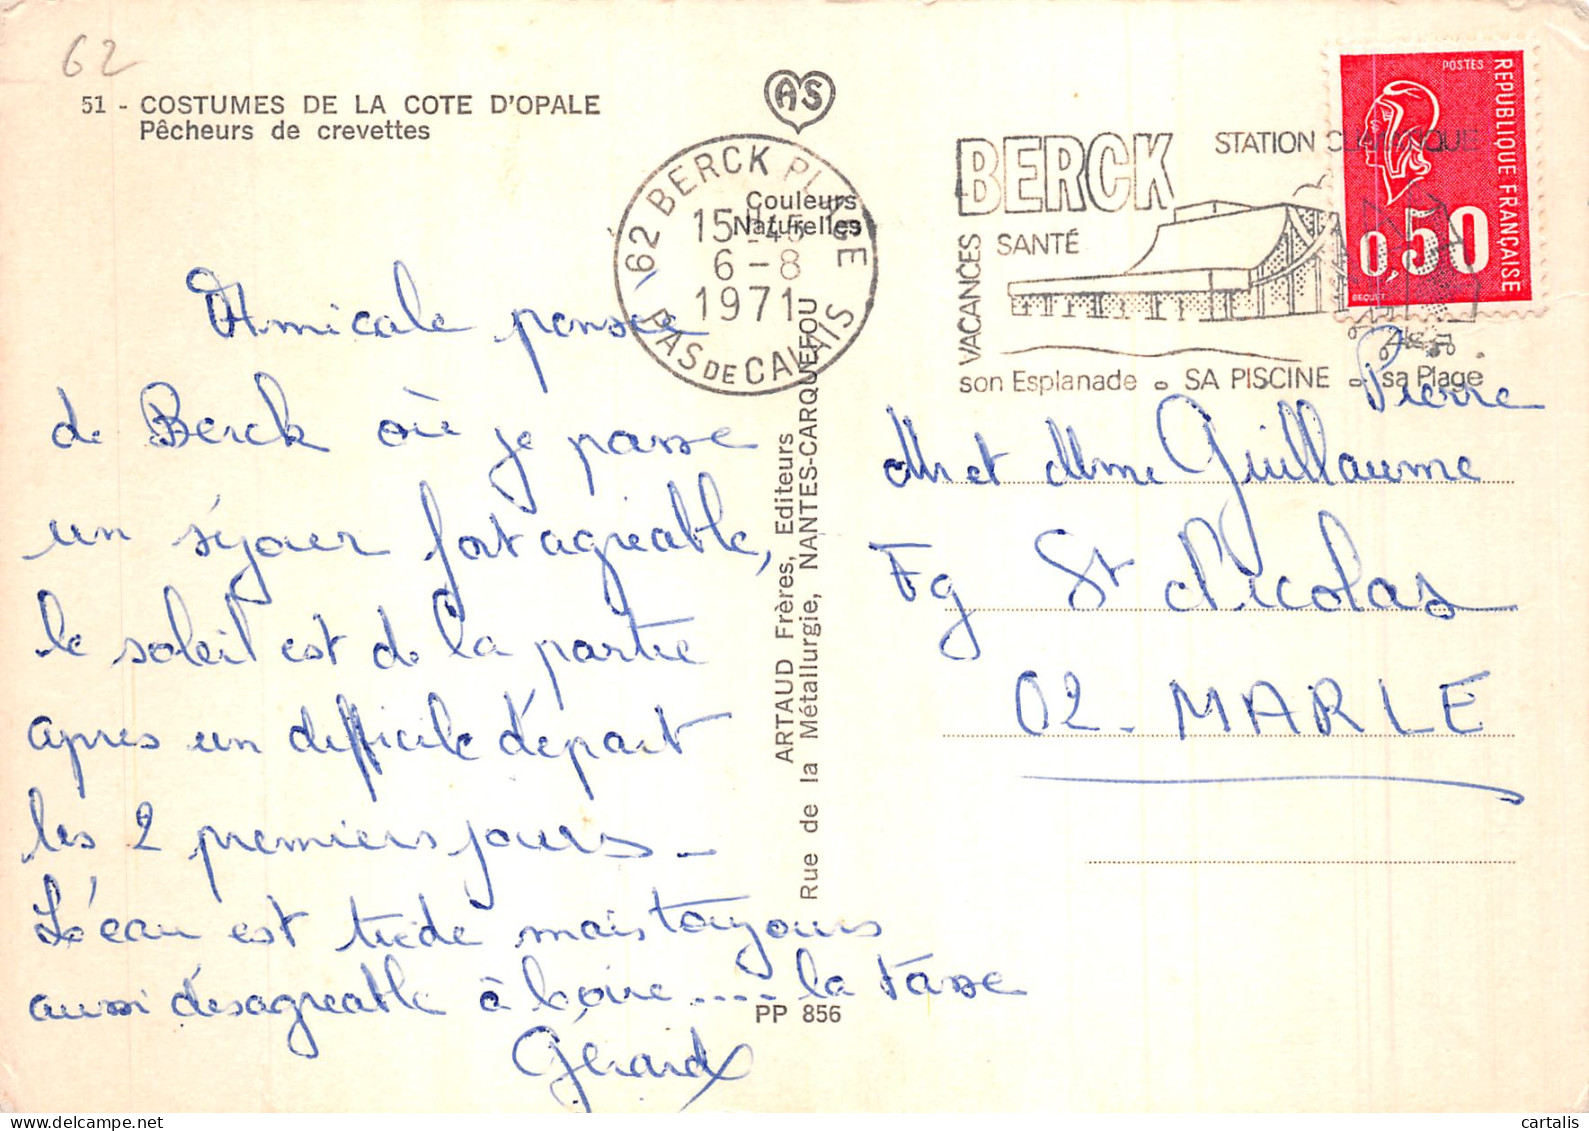 62
51 - COSTUMES DE LA COTE D'OPALE
Pêcheurs de crevettes
AS
Couleurs
Naturelles
62 BERCK PLAGE
15H45
6-8
1971
PAS DE CALAIS
BERCK
STATION CLIMATIQUE
VACANCES
SANTÉ
son Esplanade - SA PISCINE - sa Plage
POSTES
REPUBLIQUE FRANÇAISE
0,50
BEQUET
Amicale pensée
de Berck où je passe
un séjour fort agréable,
le soleil est de la partie
après un difficile départ
les 2 premiers jours -
L'eau est tiède mais toujours
aussi désagréable à boire.... la tasse
Gérard
ARTAUD Frères, Editeurs
Rue de la Métallurgie, NANTES-CARQUEFOU
PP 856
Pierre
Mr et Mme Guillaume
Fg St Nicolas
02 - MARLE
cartalis